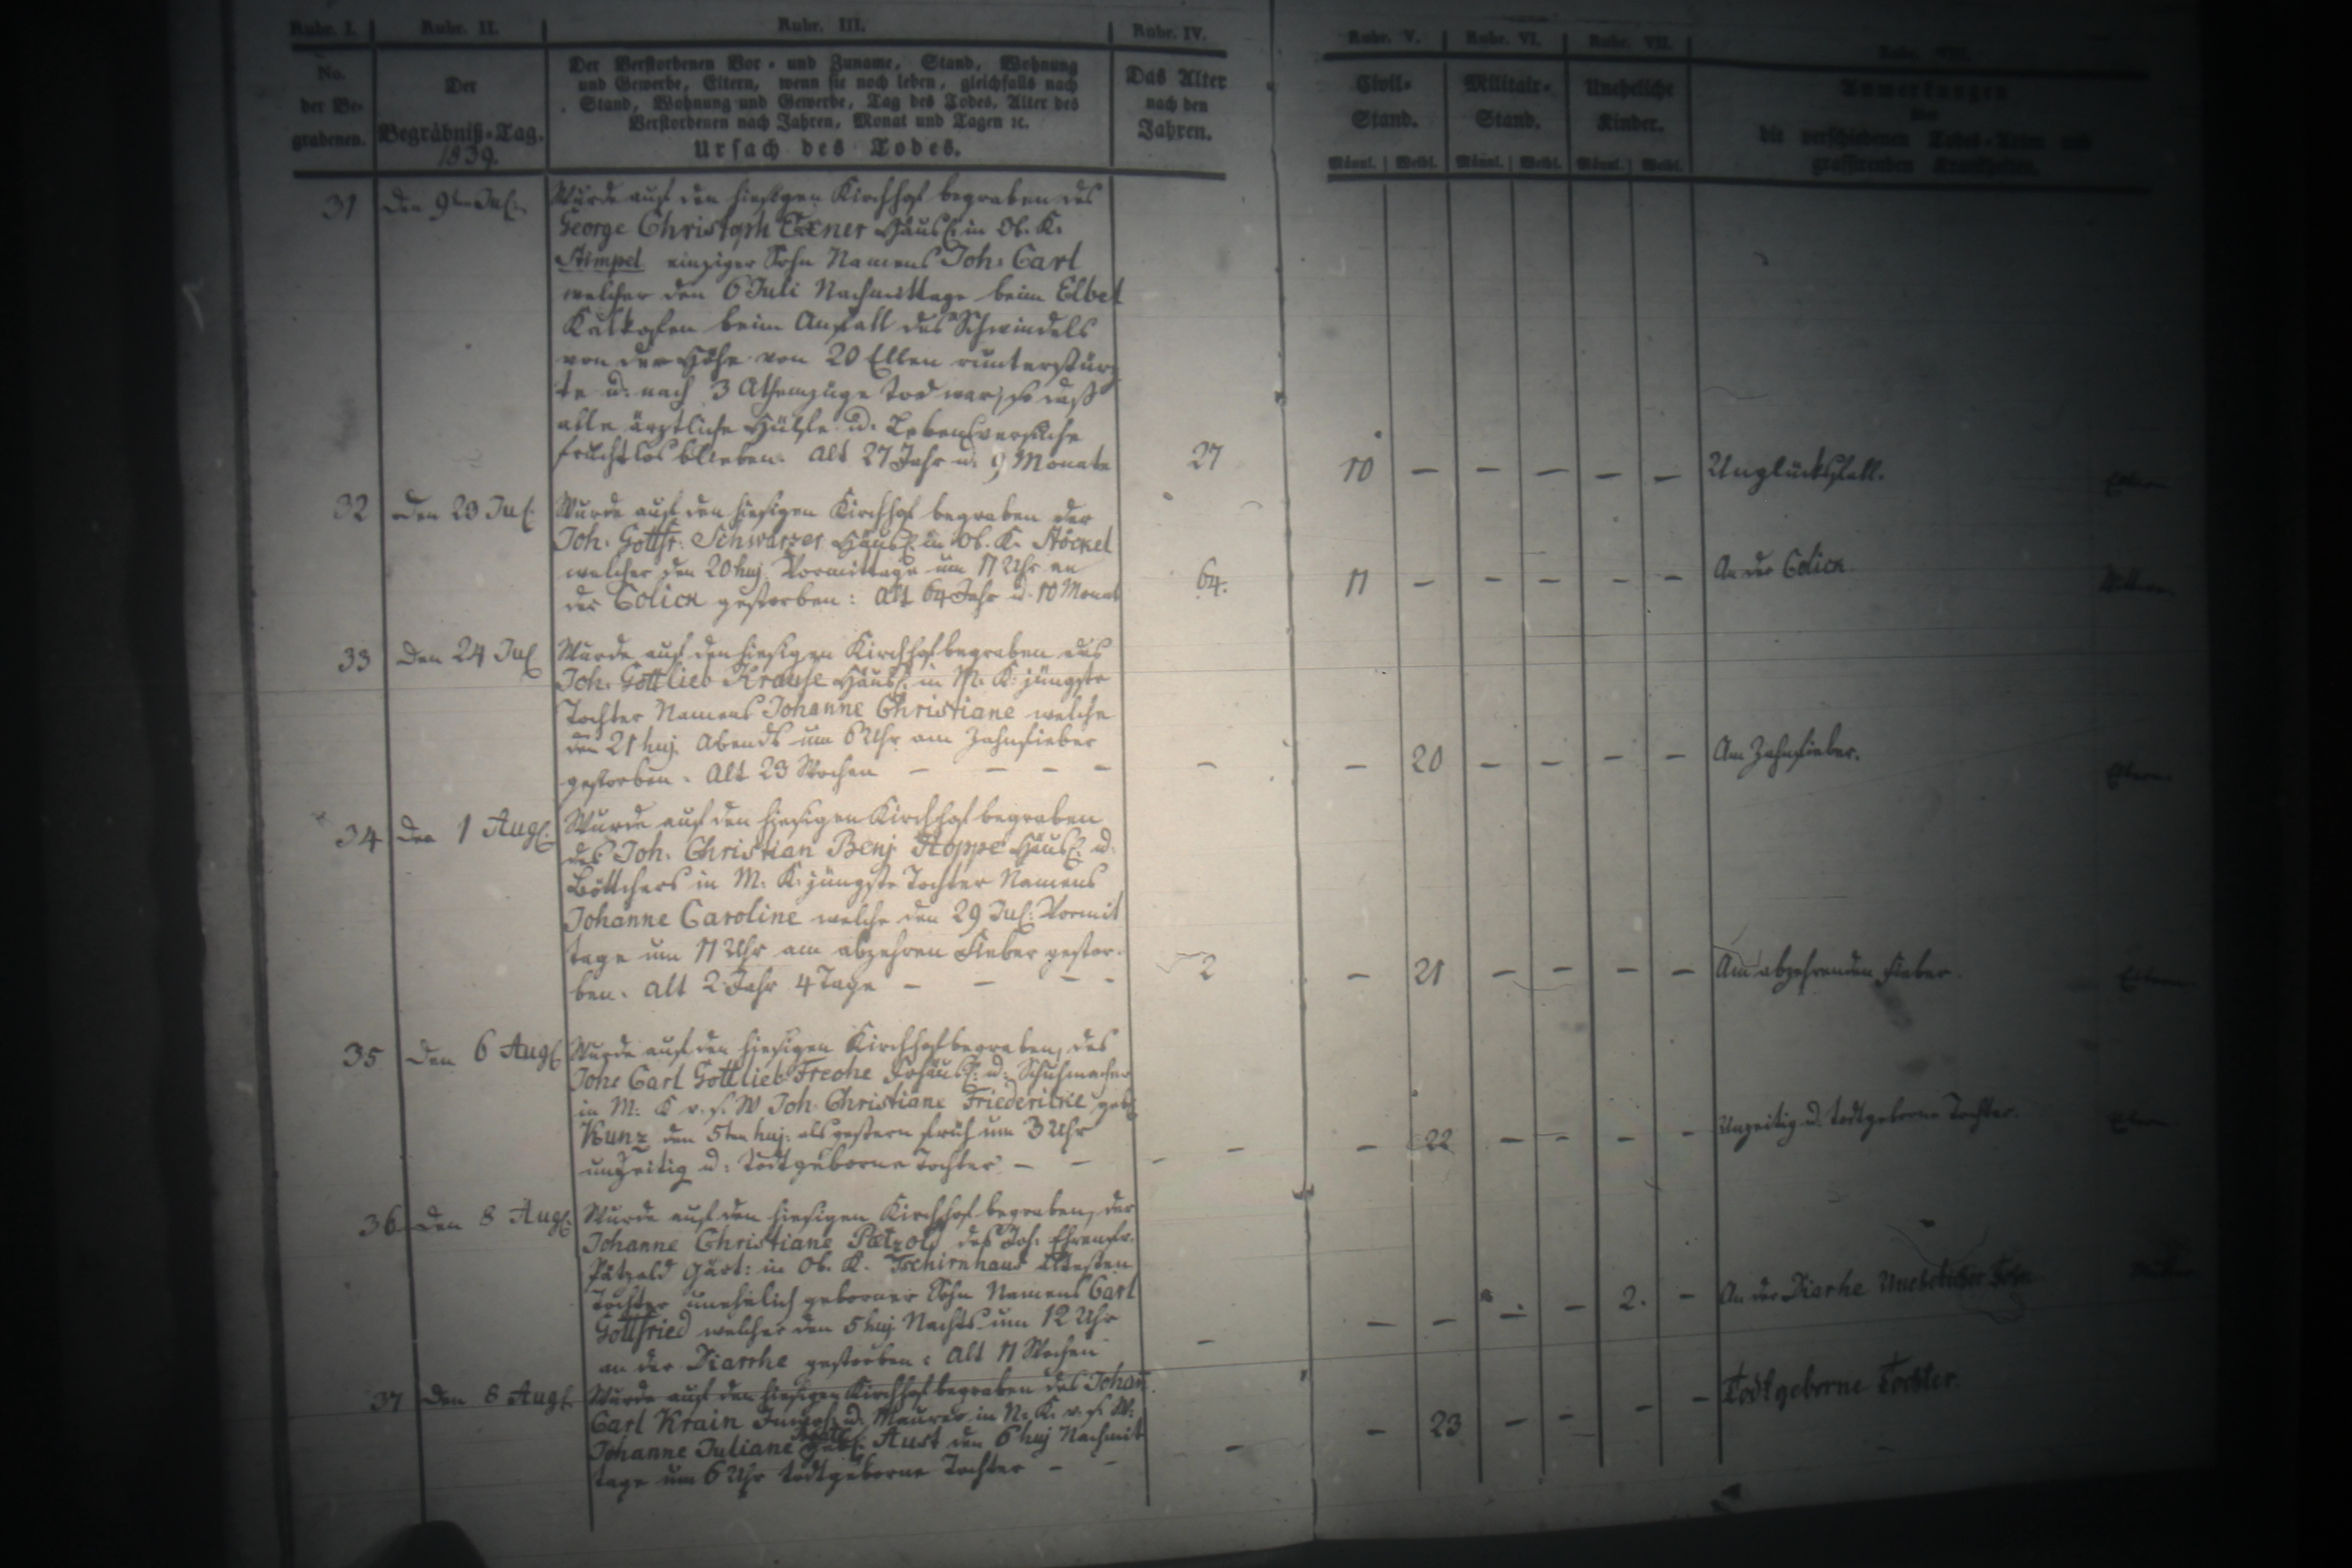 Rubr. I. Rubr. II. Rubr. III. Rubr. IV. Rubr. V. Rubr. VI. Rubr. VII. Rubr. VIII.
No. der Be-grabenen.
Der Begräbniß-Tag. 1839.
Der Verstorbenen Vor- und Zuname, Stand, Wohnung
und Gewerbe, Eltern, wenn sie noch leben, gleichfalls nach
Stand, Wohnung und Gewerbe, Tag des Todes, Alter des
Verstorbenen nach Jahren, Monat und Tagen ꝛc.
Ursach des Todes.
Das Alter nach den Jahren.
Civil-Stand.
Militair-Stand.
Uneheliche Kinder.
Anmerkungen
über
die verschiedenen Todes-Arten und
grassirenden Krankheiten.
Männl. Weibl. Männl. Weibl. Männl. Weibl.
31 Den 9ten Jul: Wurde auf den hiesigen Kirchhof begraben des
George Christoph Exner Häusl: in Ob. K.
Stimpel einziger Sohn Namens Joh: Carl
welcher den 6 Juli Nachmittage beim Elbel
Kalkofen beim Anfall des Schwindels
von der Höhe von 20 Ellen runterstürz
te u: nach 3 Athemzüge tod war, so daß
alle ärztliche Hülfe u: Lebensversuche
fruchtlos blieben. Alt 27 Jahr u. 9 Monate 27 10 — — — — — Unglücksfall. Eltern
32 Den 23 Jul: Wurde auf den hiesigen Kirchhof begraben der
Joh. Gottfr: Schwarzer Häusl: in Ob. K. Stöckel
welcher den 20 huj. Vormittage um 11 Uhr an
der Colick gestorben: Alt 64 Jahr u. 10 Monat 64. 11 — — — — — An der Colick
33 Den 24 Jul Wurde auf den hiesigen Kirchhof begraben des
Joh. Gottlieb Krause Häusl: in M. K. jüngste
Tochter Namens Johanne Christiane welche
den 21 huj. Abends um 6 Uhr am Zahnfieber
gestorben. Alt 23 Wochen — — — — — — 20 — — — — Am Zahnfieber. Eltern
34 Den 1 Aug: Wurde auf den hiesigen Kirchhof begraben
des Joh. Christian Benj Hoppe Häusl: u.
Böttchers in M. K. jüngste Tochter Namens
Johanne Caroline welche den 29 Jul: Vormit
tage um 11 Uhr am abzehren Fieber gestor-
ben. Alt 2 Jahr 4 Tage — — — - 2 — 21 — — — — Am abzehrenden Fieber. Eltern
35 Den 6 Aug: Wurde auf den hiesigen Kirchhof begraben, des
Joh: Carl Gottlieb Freche u: Schuhmacher
in M. K v. s. W Joh. Christiane Friedericke geb:
Kunz den 5ten huj: als gestern früh um 3 Uhr
unzeitig u: todtgeborne Tochter — — — — — 22 — — — — Unzeitig u. todtgeborne Tochter. Eltern
36 Den 8 Aug: Wurde auf den hiesigen Kirchhof begraben, der
Johanne Christiane Pätzold des Joh. Ehrenfr.
Pätzold Gärt: in Ob. K. Tschirnhaus ältesten
Tochter unehelich geborner Sohn Namens Carl
Gottfried welcher den 5 huj Nachts um 12 Uhr
an der Diarrhe gestorben: Alt 11 Wochen — — — — — 2. — An der Diarhe Unehelicher Sohn Mutter
37 Den 8 Aug: Wurde auf den hiesigen Kirchhof begraben des Johan
Carl Krain Inwoh: u. Maurer in N. K. v. s. W.
Johanne Juliane geb: Aust den 6 huj Nachmit
tage um 6 Uhr todtgeborne Tochter — — — — 23 — — — — Todtgeborne Tochter.